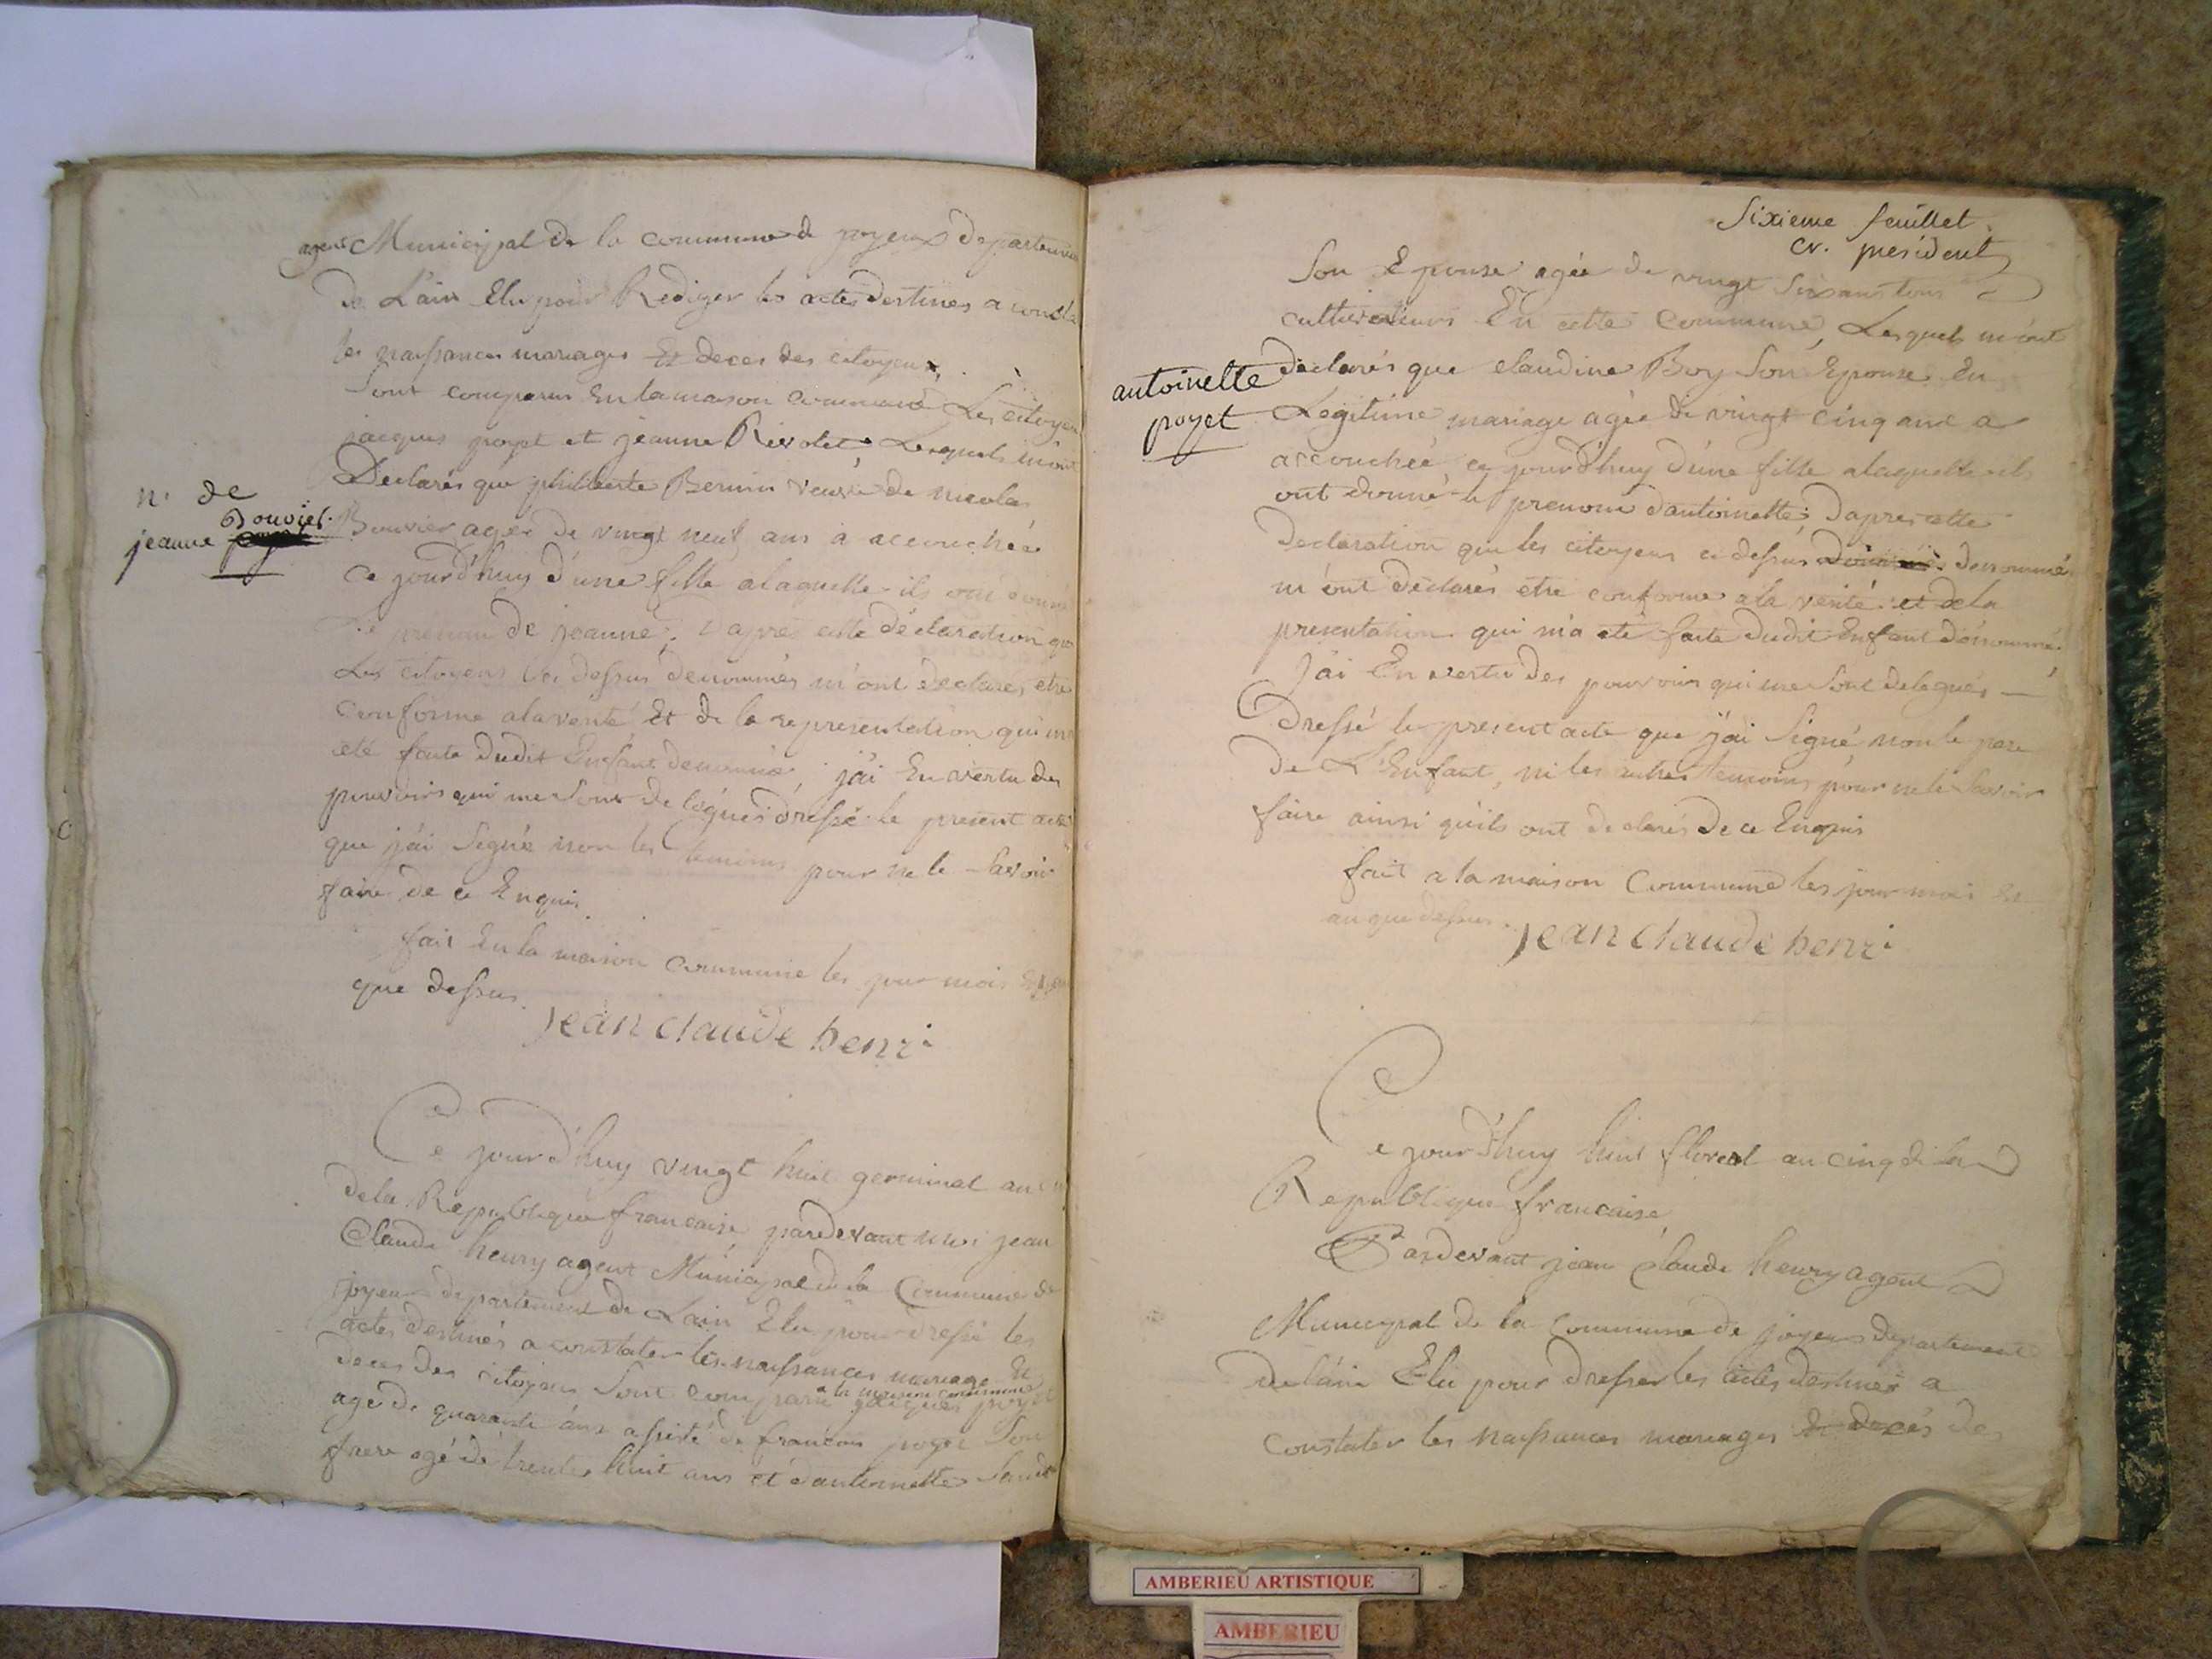 agent Municipal de la commune de joyeux departement
de L'ain Elu pour Rediger les actes destines a
les naissances mariages Et deces des citoyens,
Sont comparus En la maison commune Les citoyen
jacques poyet et jeanne Rivolet, Lesquels m'ont
Declarés que philiberte Bernin veuve de nicolas
n. de
Bouvier
jeanne
Bouvier agée de vingt neuf ans a accouchée
Ce jourd'huy d'une fille a laquelle ils ont donné
Le prenom de jeanne, d'apres cette déclaration que
Les citoyens ci dessus denommés m'ont declarés etre
Conforme a la verité Et de la representation qui m'a
eté faite dudit Enfant denommé, j'ai En vertu des
pouvoirs qui me sont delégués dressé le present acte
que j'ai Signé non les temoins pour ne le Savoir
faire de ce Enquis
fait En la maison commune les jour mois Et an
que dessus.
jean claude henri
Ce jourd'huy vingt huit germinal an
de la Republique francaise pardevant moi jean
Claude henry agent Municipal de la Commune de
joyeux departement de Lain Elu pour dressé les
actes destinés a constater les naissances mariage Et
deces des citoyens Sont comparu a la maison commune jacques poyet
agé de quarante ans assisté de francois poyet Son
frere agé de trente huit ans et d'antoinette
Sixieme feuillet.
cr. president
Son Epouse agée de vingt Six ans tous
cultivateurs En cette commune, Lesquels m'ont
antoinette
poyet
declarés que claudine Boy Son Epouse En
Legitime mariage agée de vingt cinq ans a
accouchée ce jourd'huy d'une fille a laquelle ils
ont donné le prenom d'antoinette, d'apres cette
Declaration que les citoyens ci dessus denommés
m'ont declarés etre conforme a la verité et de la
presentation qui m'a eté faite dudit Enfant dénommé.
J'ai En vertu des pouvoirs qui me Sont delegués —
Dressé le present acte que j'ai Signé non le pere
de L'Enfant, ni les autres temoins pour ne le Savoir
faire ainsi qu'ils ont declarés de ce Enquis
fait a la maison Commune les jour mois Et
an que dessus.
jean claude henri
Ce jourd'huy huit floreal an cinq de la
Republique francaise
Pardevant jean Claude henry agent
Municipal de la Commune de joyeux departement
de lain Elu pour dresser les actes destinés a
Constater les naissances mariages et decès des
AMBERIEU ARTISTIQUE
AMBERIEU